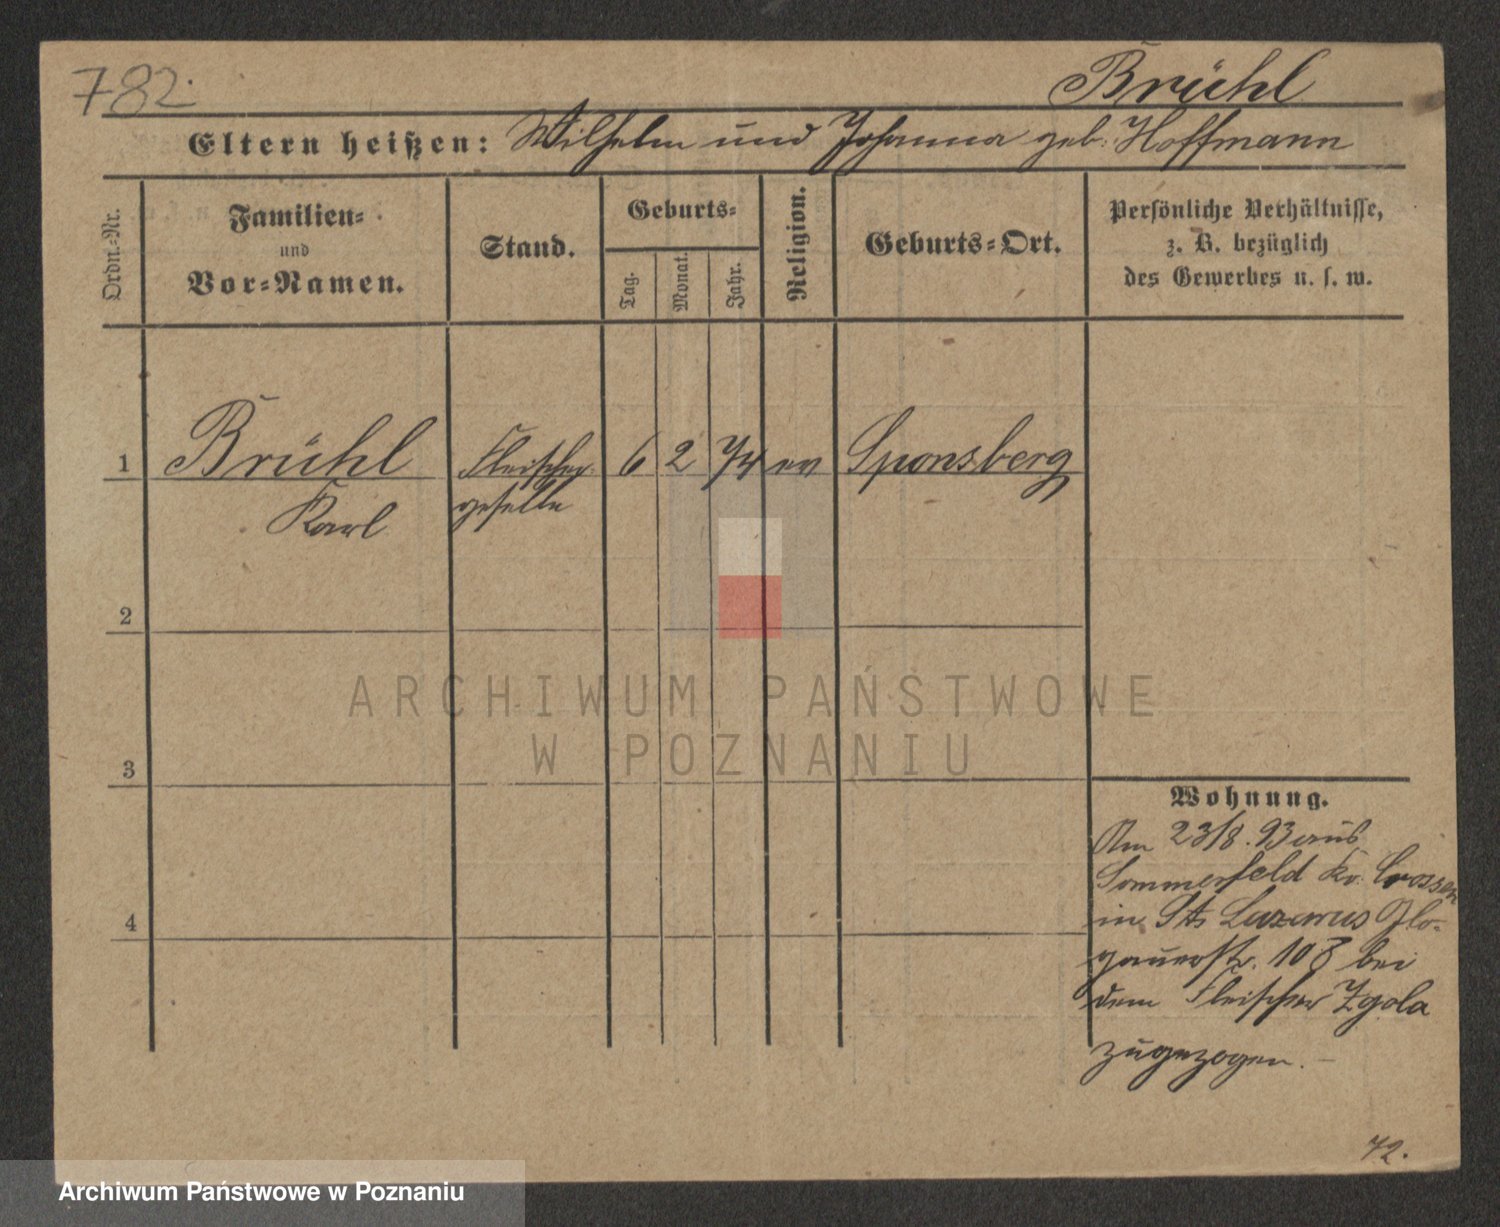 782.
Brühl
Eltern heißen: Wilhelm und Johanna geb. Hoffmann
Ordn.-Nr.
Familien-
und
Vor-Namen.
Stand.
Geburts-
Tag.
Monat.
Jahr.
Religion.
Geburts-Ort.
Persönliche Verhältnisse,
z. B. bezüglich
des Gewerbes u. s. w.
1 Brühl Fleischer- 6 2 74 ev Sponsberg
Karl geselle
2
3
4
ARCHIWUM PAŃSTWOWE
W POZNANIU
Wohnung.
Am 23/8. 93 aus
Sommerfeld Kr. Crossen
in St. Lazarus Glo-
gauerstr. 108 bei
dem Fleischer Zgola
zugezogen. –
72.
Archiwum Państwowe w Poznaniu